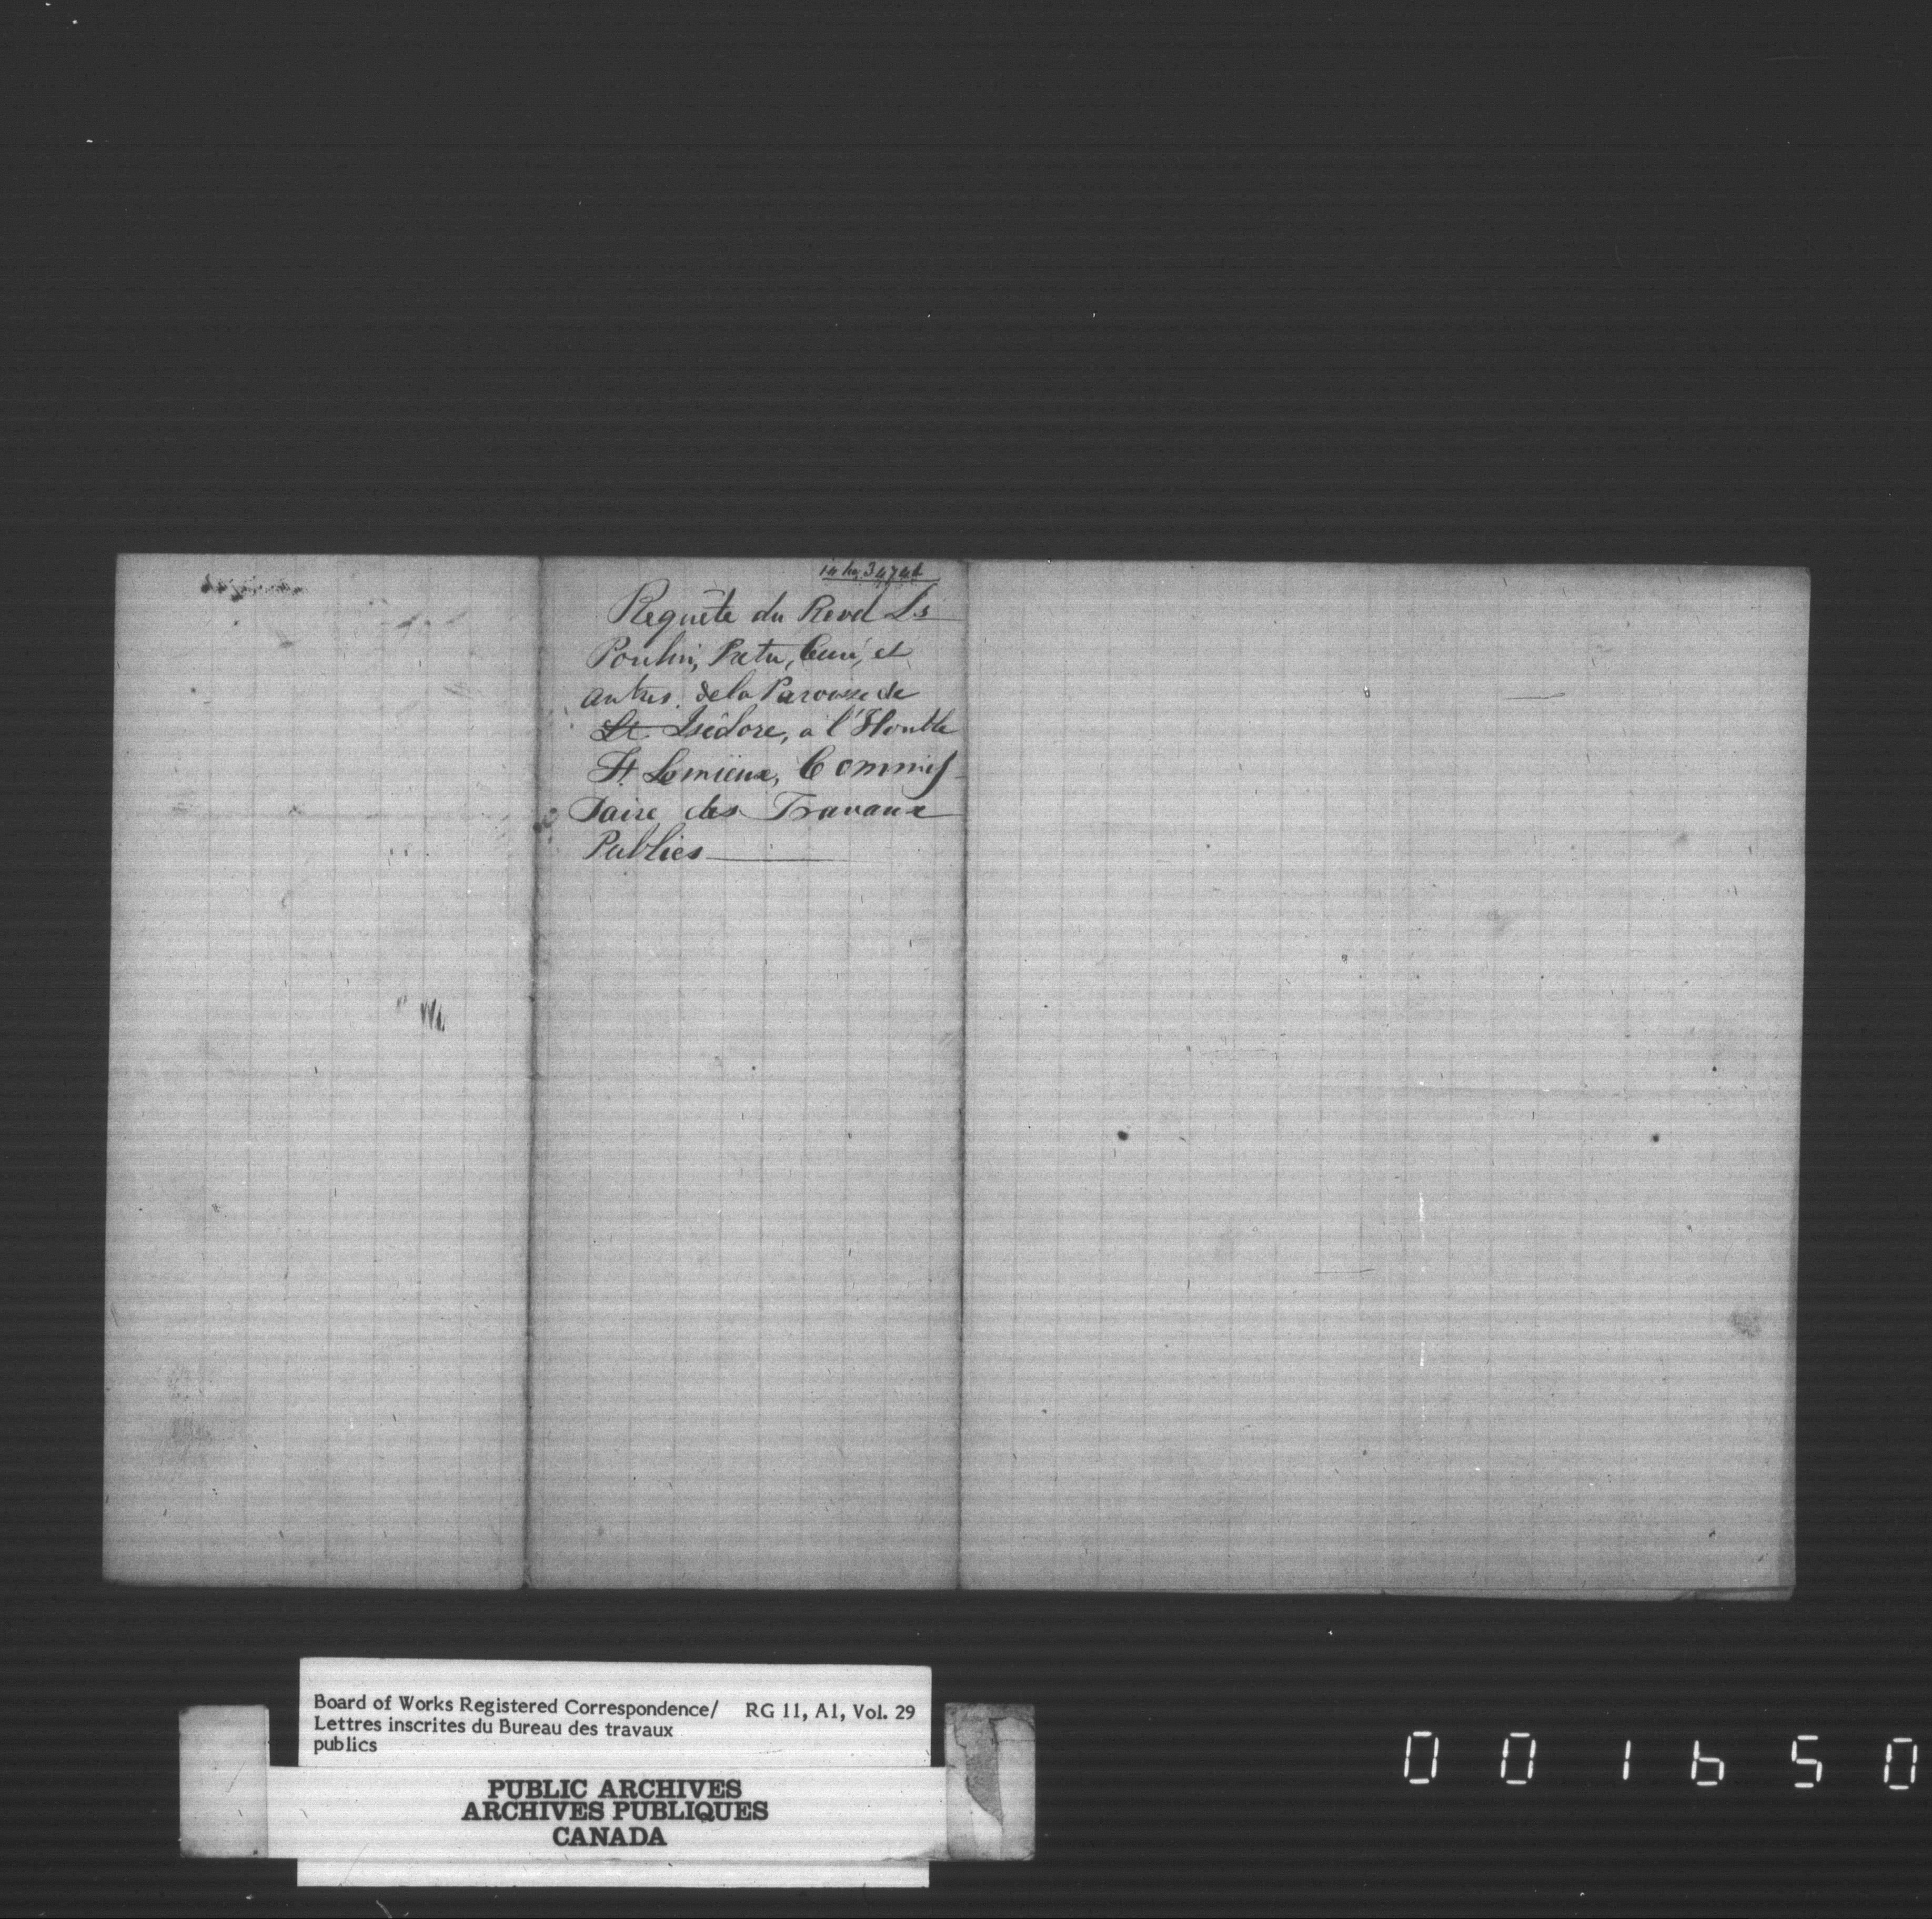 34742
Requête du Revd Ls
Poulin, Prêtre, Curé, et
autres de la Paroisse de
St Isidore, a l'Honble
F. Lemieux, Commis-
saire des Travaux
Publics
Board of Works Registered Correspondence/ RG 11, A1, Vol. 29
Lettres inscrites du Bureau des travaux
publics
PUBLIC ARCHIVES
ARCHIVES PUBLIQUES
CANADA
001650